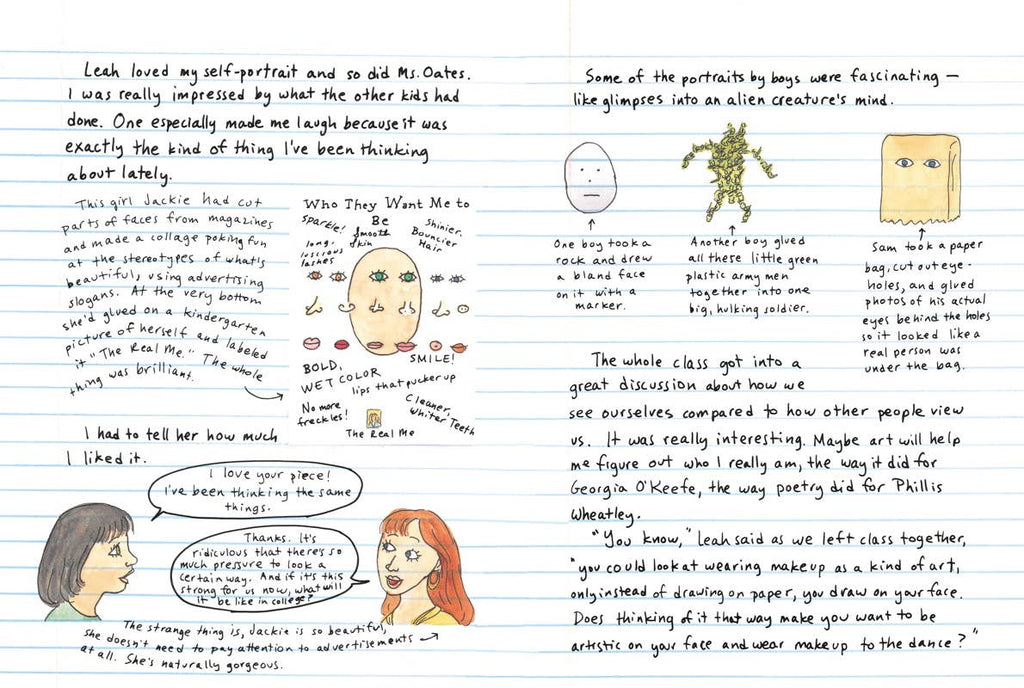 Leah loved my self-portrait and so did Ms. Oates.
I was really impressed by what the other kids had
done. One especially made me laugh because it was
exactly the kind of thing I've been thinking
about lately.
This girl Jackie had cut
parts of faces from magazines
and made a collage poking fun
at the stereotypes of what's
beautiful, using advertising
slogans. At the very bottom
she'd glued on a kindergarten
picture of herself and labeled
it "The Real Me." The whole
thing was brilliant.
Who They Want Me to
Be
Sparkle!
Smooth
Skin
Shinier,
Bouncier
Hair
long,
luscious
lashes
BOLD,
WET COLOR
SMILE!
lips that pucker up
No more
freckles!
Cleaner,
Whiter Teeth
The Real Me
I had to tell her how much
I liked it.
I love your piece!
I've been thinking the same
things.
Thanks. It's
ridiculous that there's so
much pressure to look a
certain way. And if it's this
strong for us now, what will
it be like in college?
The strange thing is, Jackie is so beautiful,
she doesn't need to pay attention to advertisements
at all. She's naturally gorgeous.
Some of the portraits by boys were fascinating —
like glimpses into an alien creature's mind.
One boy took a
rock and drew
a bland face
on it with a
marker.
Another boy glued
all these little green
plastic army men
together into one
big, hulking soldier.
Sam took a paper
bag, cut out eye-
holes, and glued
photos of his actual
eyes behind the holes
so it looked like a
real person was
under the bag.
The whole class got into a
great discussion about how we
see ourselves compared to how other people view
us. It was really interesting. Maybe art will help
me figure out who I really am, the way it did for
Georgia O'Keefe, the way poetry did for Phillis
Wheatley.
"You know," Leah said as we left class together,
"you could look at wearing makeup as a kind of art,
only instead of drawing on paper, you draw on your face.
Does thinking of it that way make you want to be
artistic on your face and wear makeup to the dance?"